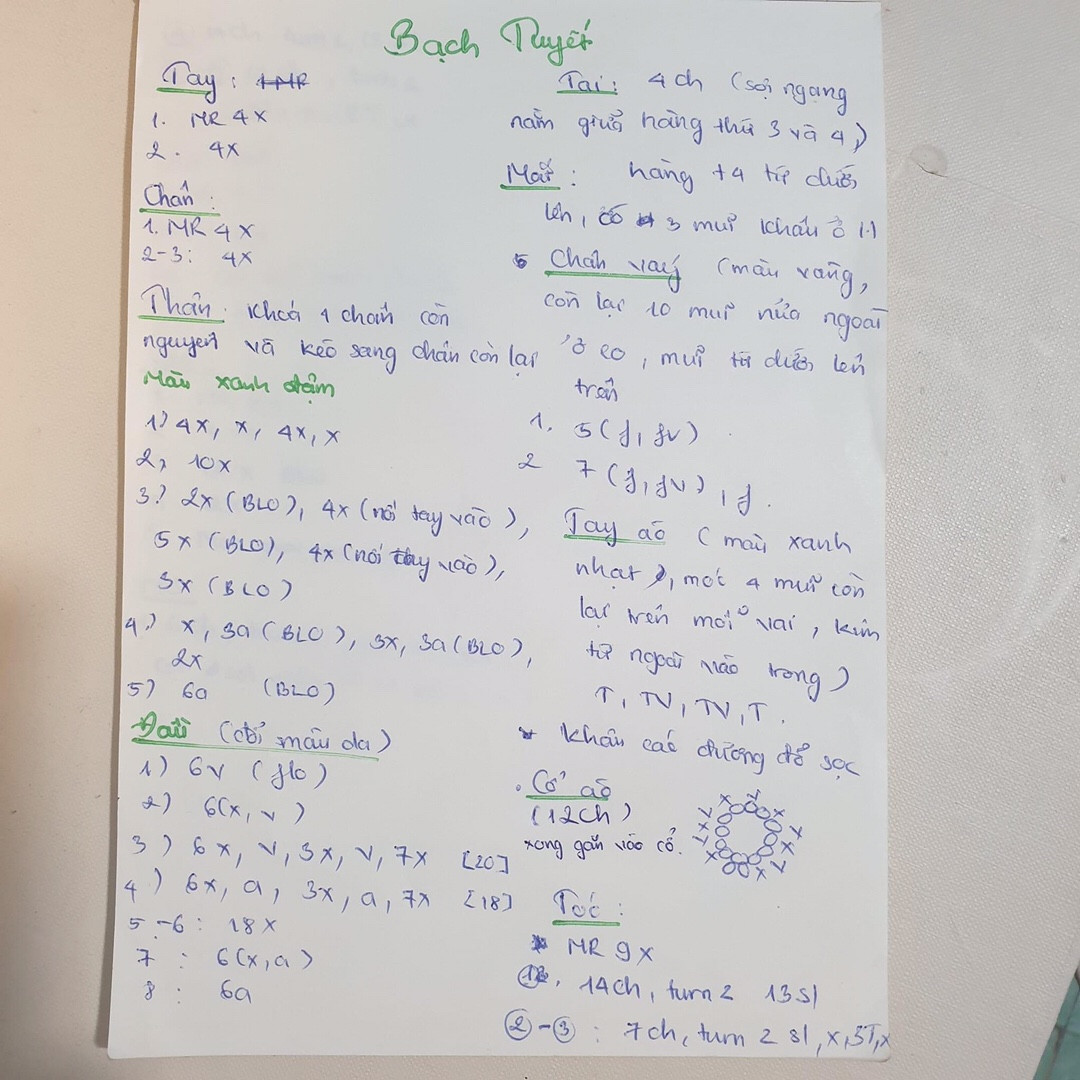 Bạch Tuyết
Tay :
1. MR 4x
2. 4x
Chân :
1. MR 4x
2-3: 4x
Thân : Khoá 1 chân còn
nguyên và kéo sang chân còn lại
Màu xanh đậm
1) 4x, x, 4x, x
2, 10x
3) 2x (BLO), 4x (nối tay vào),
5x (BLO), 4x (nối tay vào),
3x (BLO)
4) x, 3a (BLO), 3x, 3a (BLO),
2x
5) 6a (BLO)
Đầu (đổi màu da)
1) 6v (flo)
2) 6(x, v)
3) 6x, v, 3x, v, 7x [20]
4) 6x, a, 3x, a, 7x [18]
5-6: 18x
7 : 6(x, a)
8 : 6a
Tai: 4ch (sợi ngang
nằm giữa hàng thứ 3 và 4)
Mắt : hàng t4 từ dưới
lên, có 3 mũi khâu ở
Chân váy (màu vàng,
còn lại 10 mũi nửa ngoài
ở eo, mũi từ dưới lên
trên
1. 5(f, fv)
2 7(f, fv), f.
Tay áo (màu xanh
nhạt), móc 4 mũi còn
lại trên mỗi vai, kim
từ ngoài vào trong)
T, TV, TV, T.
* Khâu các đường đỏ sọc
. Cổ áo
(12ch)
xong gắn vào cổ.
Tóc :
MR 9x
14ch, turn 2 13sl
②-③ : 7ch, turn 2 sl, x, 3T, x